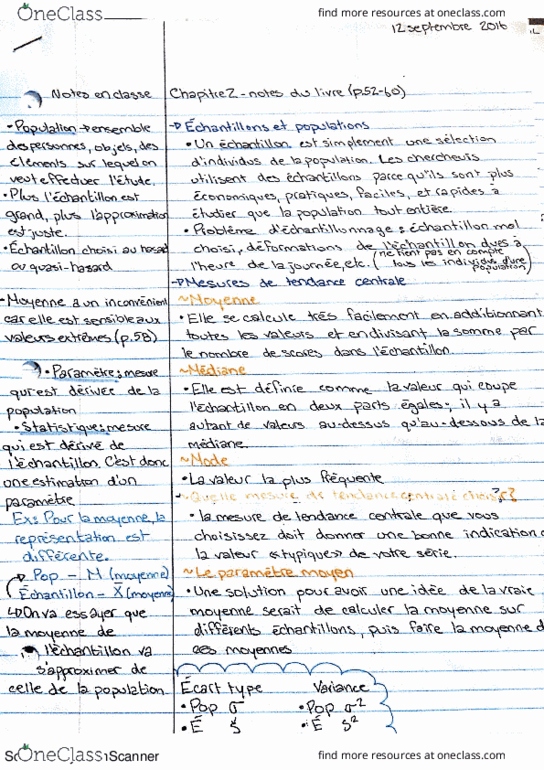 OneClass
find more resources at oneclass.com
12 septembre 2016
Notes en classe
• Population → ensemble
des personnes, objets, des
éléments sur lequel on
veut effectuer l'étude.
• Plus l'échantillon est
grand, plus l'approximation
est juste.
• Échantillon choisi au hasard
ou quasi-hasard
- Moyenne a un inconvénient
car elle est sensible aux
valeurs extrêmes (p.58)
• Paramètre: mesure
qui est dérivée de la
population
• Statistique: mesure
qui est dérivé de
l'échantillon. C'est donc
une estimation d'un
paramètre
Ex: Pour la moyenne, la
représentation est
différente.
Pop - M (moyenne)
Échantillon - X (moyenne)
↳ On va essayer que
la moyenne de
l'échantillon va
s'approximer de
celle de la population
Chapitre 2 - notes du livre (p.52-60)
→ Échantillons et populations
• Un échantillon est simplement une sélection
d'individus de la population. Les chercheurs
utilisent des échantillons parce qu'ils sont plus
économiques, pratiques, faciles, et rapides à
étudier que la population tout entière.
• Problème d'échantillonnage: échantillon mal
choisi, déformations de l'échantillon dues à
l'heure de la journée, etc. (ne tient pas en compte
tous les individus d'une
population)
→ Mesures de tendance centrale
~ Moyenne
• Elle se calcule très facilement en additionnant
toutes les valeurs et en divisant la somme par
le nombre de scores dans l'échantillon.
~ Médiane
• Elle est définie comme la valeur qui coupe
l'échantillon en deux parts égales; il y a
autant de valeurs au-dessus qu'au-dessous de la
médiane.
~ Mode
• La valeur la plus fréquente
~ Quelle mesure de tendance centrale choisir?
• la mesure de tendance centrale que vous
choisissez doit donner une bonne indication d
la valeur «typique» de votre série.
~ Le paramètre moyen
• Une solution pour avoir une idée de la vraie
moyenne serait de calculer la moyenne sur
différents échantillons, puis faire la moyenne d
ces moyennes
Écart type Variance
• Pop σ • Pop σ²
• É S • É S²
OneClass
Scanner
find more resources at oneclass.com